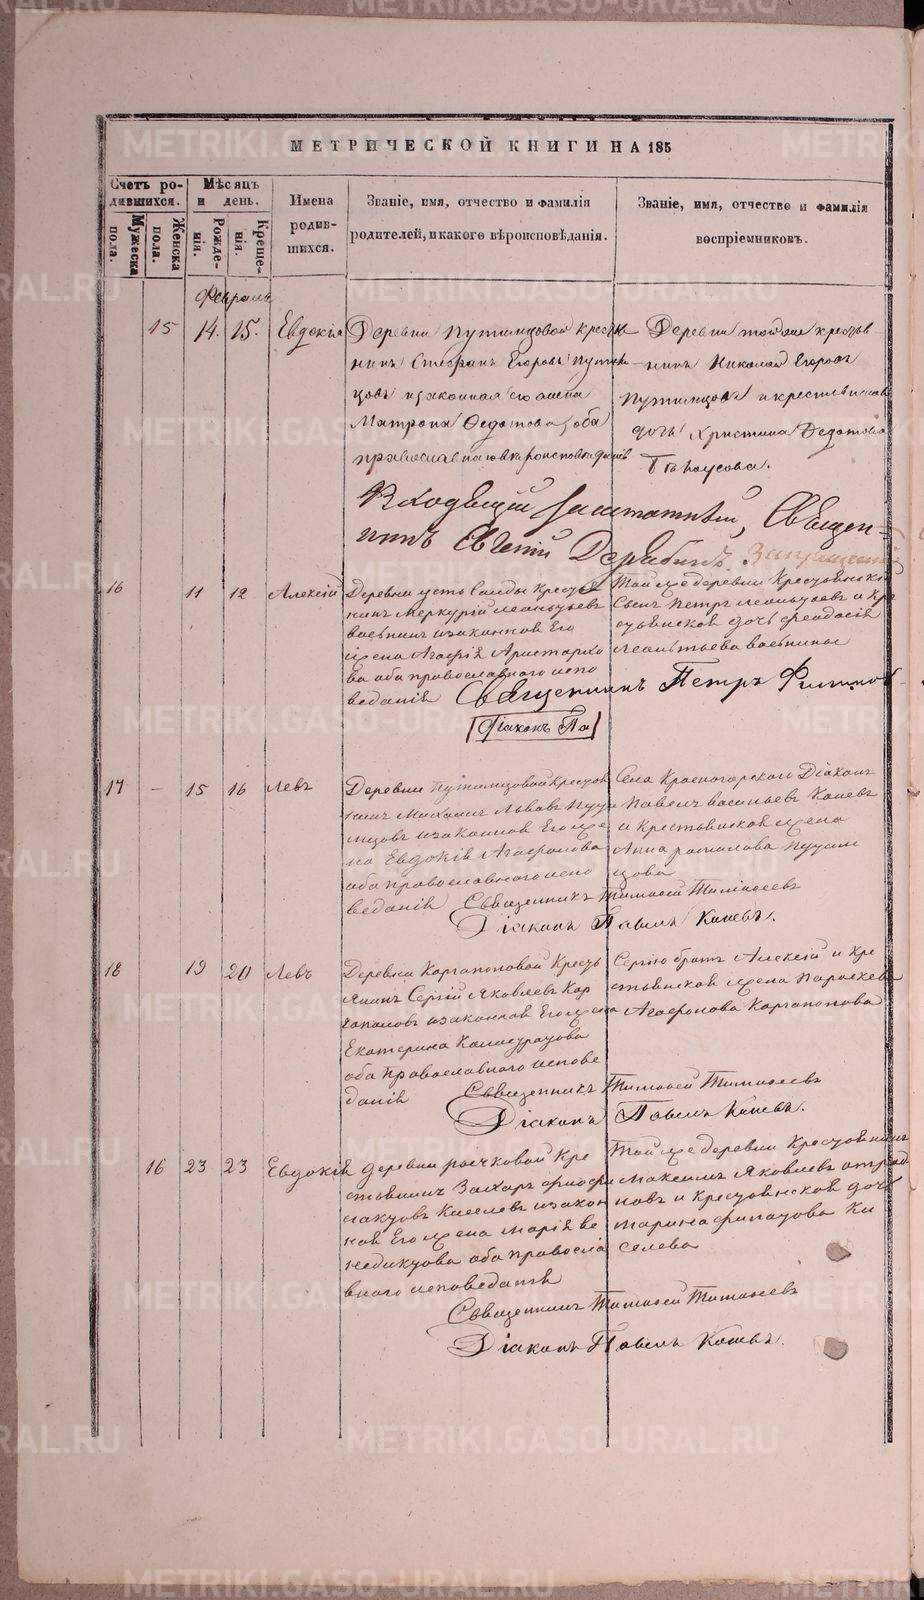 МЕТРИЧЕСКОЙ КНИГИ НА 185
Счетъ ро-
дившихся.
Мужеска
пола.
Женска
пола.
Мѣсяцъ
и день.
Рожде-
нія.
Креще-
нія.
Имена
родив-
шихся.
Званіе, имя, отчество и фамилія
родителей, и какого вѣроисповѣданія.
Званіе, имя, отчество и фамилія
воспріемниковъ.
Февраль
15 14. 15. Евдокія
Деревни Путимцовой кресть
нинъ Стефанъ Егоровъ Путим
цовъ и законная его жена
Матрона Федотова, оба
православнаго вѣроисповѣданія
Деревни тойже крестья
нинъ Николай Егоровъ
Путимцовъ и крестьянская
дочь Христина Федотова
Бѣлоусова.
заштатный, Священ=
никъ Евгеній Дерябинъ.
16 11 12 Алексій
Деревни усть Салды Кресть
нинъ Меркурій Леонтьевъ
и законная Его
жена Агафія Аристархо
ва оба православнаго испо
веданія
Той же деревни Крестьянской
Сынъ Петръ Леонтьевъ и Кре
стьянская дочь Феодосія
Леонтьева
Священникъ Петръ
Діаконъ Па
17 - 15 16 Левъ
Деревни Путимцовой Кресть
нинъ Львовъ Пути
мцовъ и законная Его же
на Евдокія Агафонова
оба православнаго испо
веданія
Села Красногорского Діаконъ
Павелъ Васильевъ Каневъ
и Крестьянская жена
Анна Путим
цова
Священникъ Тимофей Тимофеевъ
Діаконъ Павелъ Каневъ.
18 19 20 Левъ
Деревни Каргаполовой Кресть
янинъ Сергій Яковлевъ Кар
гаполовъ и законная Его жена
Екатерина Калистратова
оба Православнаго испове
данія
братъ Алексій и Кре
стьянская жена Параскева
Агафонова Каргаполова
Священникъ Тимофей Тимофеевъ
Діаконъ Павелъ Каневъ.
16 23 23 Евдокія
деревни Кре
стьянинъ Захаръ
Киселевъ и закон
ная Его жена Марія Ве
недиктова оба Правосла
внаго исповеданія
Той же деревни Крестьянинъ
Максимъ Яковлевъ
новъ и Крестьянская дочь
Марина Ки
селева
Священникъ Тимофей Тимофеевъ
Діаконъ Павелъ Каневъ.
METRIKI.GASO-URAL.RU